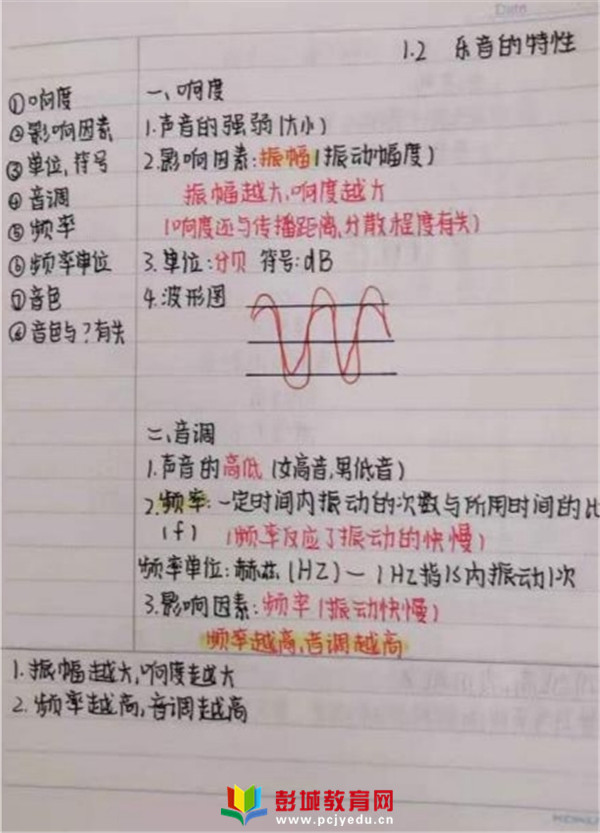 Date
1.2 乐音的特性
①响度
②影响因素
③单位,符号
④音调
⑤频率
⑥频率单位
⑦音色
⑧音色与?有关
一、响度
1.声音的强弱(大小)
2.影响因素:振幅(振动幅度)
振幅越大,响度越大
(响度还与传播距离,分散程度有关)
3.单位:分贝 符号:dB
4.波形图
二、音调
1.声音的高低(女高音,男低音)
2.频率:一定时间内振动的次数与所用时间的比
(f) (频率反应了振动的快慢)
频率单位:赫兹(HZ)—1HZ指1s内振动1次
3.影响因素:频率(振动快慢)
频率越高,音调越高
1.振幅越大,响度越大
2.频率越高,音调越高
彭城教育网
www.pcjyedu.cn